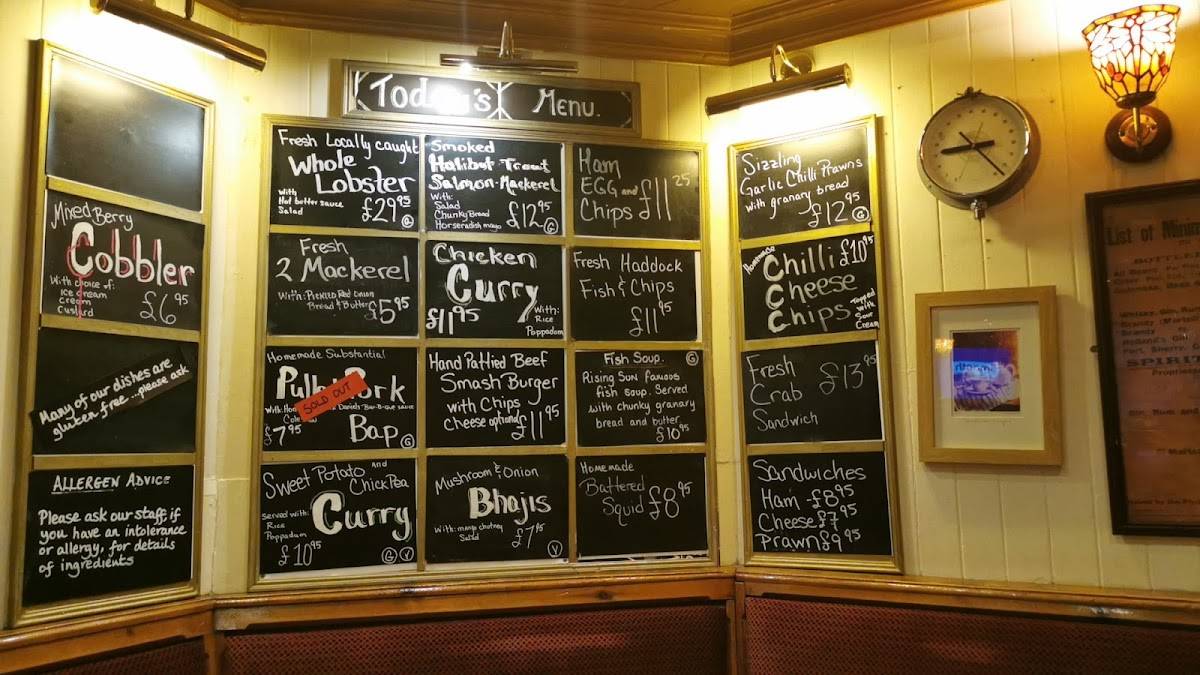 Today's Menu.
Mixed Berry
Cobbler
With choice of:
ice cream
Cream
Custard
£6.95
Many of our dishes are
gluten free ...please ask
ALLERGEN ADVICE
Please ask our staff, if
you have an intolerance
or allergy, for details
of ingredients
Fresh Locally caught
Whole
Lobster
With
Hot butter sauce
Salad
£29.95
G
Smoked
Halibut Trout
Salmon-Mackerel
With:
Salad
Chunky Bread
Horseradish mayo
£12.95
G
Ham
EGG and
Chips £11.25
Fresh
2 Mackerel
With: Pickled Red Onion
Bread & Butter £5.95
Chicken
Curry
£11.95
With:
Rice
Poppadom
Fresh Haddock
Fish & Chips
£11.95
Homemade Substantial
SOLD OUT
£7.95
Bap
G
Hand Pattied Beef
Smash Burger
with Chips
Cheese optional £11.95
Fish Soup. G
Rising Sun famous
fish soup. Served
with chunky granary
bread and butter
£10.95
Sweet Potato and
ChickPea
served with:
Rice
Poppadum
Curry
£10.95
G V
Mushroom & Onion
Bhajis
With: mango chutney
Salad
£7.95
V
Homemade
Battered
Squid £8.95
Sizzling
Garlic Chilli Prawns
with granary bread
£12.95
G
Homemade
Chilli £10.95
Cheese
Chips
Topped
with
Sour
Cream
Fresh
Crab
Sandwich
£13.95
Sandwiches
Ham -£8.95
Cheese £7.95
Prawn £9.95
List of